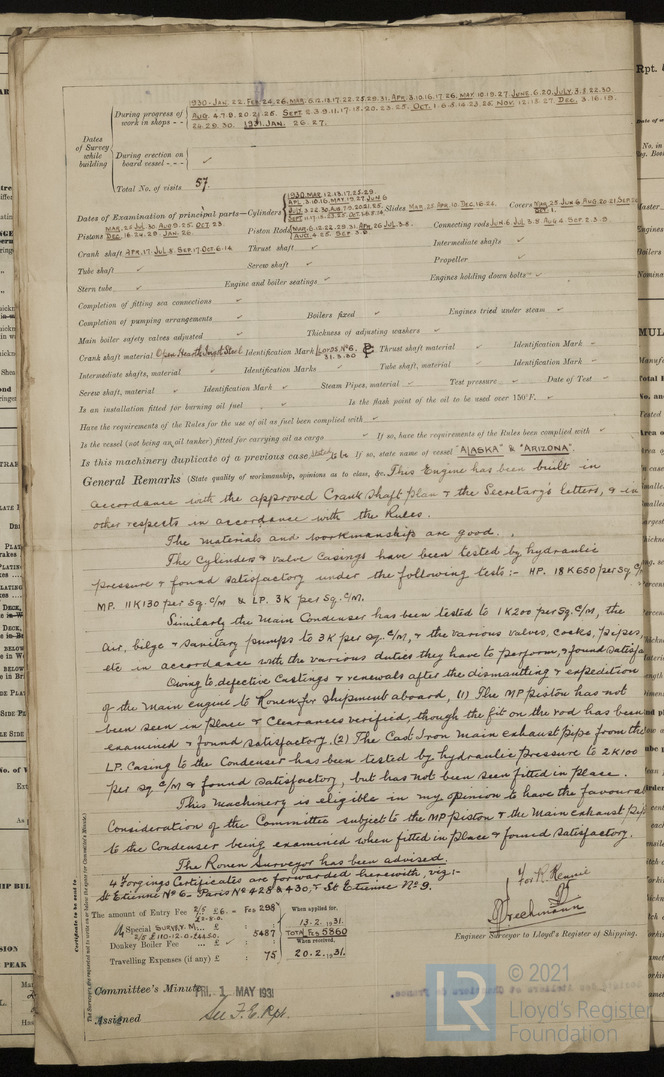 1930. JAN. 22. FEB. 24.26. MAR. 6.12.13.17.22.25.29.31. APR. 3.10.16.17.26. MAY. 10.19.27. JUNE. 6.20. JULY. 3.8.22.30.
During progress of work in shops - -
AUG. 4.7.9.20.21.25. SEPT. 2.3.9.11.17.18.20.23.25. OCT. 1.6.8.14.23.25. NOV. 12.18.27 DEC. 3.16.19.
24.29.30. 1931. JAN. 26.27.
Dates of Survey while building
During erection on board vessel - - -
Total No. of visits 57.
Dates of Examination of principal parts—Cylinders 1930 MAR. 12.13.17.25.29. APL. 3.10.16. MAY. 19.27. JUN 6 Slides MAR. 25 APR. 10. DEC. 16.24. Covers
Pistons MAR. 25 JUL. 30. AUG 9. 25. OCT. 23. DEC. 16.24.29. JAN. 26. Piston Rods MAR. 6.12.22.29.31. APR. 26 JUL. 3.8. AUG. 4.25. SEP. 3.9. Connecting rods JUN. 6 JUL. 3.8. AUG 4. SEP. 2.3.9.
Crank shaft APR. 17. JUL. 8. SEP. 17. OCT. 6.14 Thrust shaft Intermediate shafts
Tube shaft Screw shaft Propeller
Stern tube Engine and boiler seatings Engines holding down bolts
Completion of fitting sea connections
Completion of pumping arrangements Boilers fixed Engines tried under steam
Main boiler safety valves adjusted Thickness of adjusting washers
Crank shaft material Open Hearth Ingot Steel Identification Mark LLOYDS No 6. 31.3.30 Thrust shaft material Identification Mark
Intermediate shafts, material Identification Marks Tube shaft, material Identification Mark
Screw shaft, material Identification Mark Steam Pipes, material Test pressure Date of Test
Is an installation fitted for burning oil fuel Is the flash point of the oil to be used over 150°F.
Have the requirements of the Rules for the use of oil as fuel been complied with
Is the vessel (not being an oil tanker) fitted for carrying oil as cargo If so, have the requirements of the Rules been complied with
Is this machinery duplicate of a previous case stated to be If so, state name of vessel "ALASKA" & "ARIZONA".
General Remarks (State quality of workmanship, opinions as to class, &c. This Engine has been built in
accordance with the approved Crank Shaft plan & the Secretary's letters, & in
other respects in accordance with the Rules.
The materials and workmanship are good.
The Cylinders & valve casings have been tested by hydraulic
pressure & found satisfactory under the following tests :- HP. 18K650 per Sq. C/M
MP. 11K130 per Sq. C/M & LP. 3K per Sq. C/M.
Similarly the Main Condenser has been tested to 1K200 per Sq. C/M, the
air, bilge & sanitary pumps to 3K per Sq. C/M, & the various valves, cocks, pipes,
etc in accordance with the various duties they have to perform, & found satisfa
Owing to defective castings & renewals after the dismantling & expedition
of the main engine to Rouen for shipment aboard, (1) The MP piston has not
been seen in place & clearances verified, though the fit on the rod has been
examined & found satisfactory. (2) The Cast Iron main exhaust pipe from the
LP. Casing to the Condenser has been tested by hydraulic pressure to 2K100
per sq C/M & found satisfactory, but has not been seen fitted in place.
This machinery is eligible in my opinion to have the favoura
Consideration of the Committee subject to the MP piston & the Main exhaust pip
to the Condenser being examined when fitted in place & found satisfactory.
The Rouen Surveyor has been advised.
4 Forgings Certificates are forwarded herewith, viz :-
St Etienne No 6 - Paris Nos 428 & 430, & St Etienne No 9.
For K. Rennie
The amount of Entry Fee 2/5 £6. = Fcs 298 When applied for,
Special SURVEY. M... £ 5487 13.2.1931.
TOTAL Fcs 5860
Donkey Boiler Fee ... £ When received,
Travelling Expenses (if any) £ 75 20.2.1931.
Engineer Surveyor to Lloyd's Register of Shipping.
Committee's Minute FRI. 1 MAY 1931
Assigned See F.E. Rpt.
© 2021
LR
Lloyd's Register
Foundation